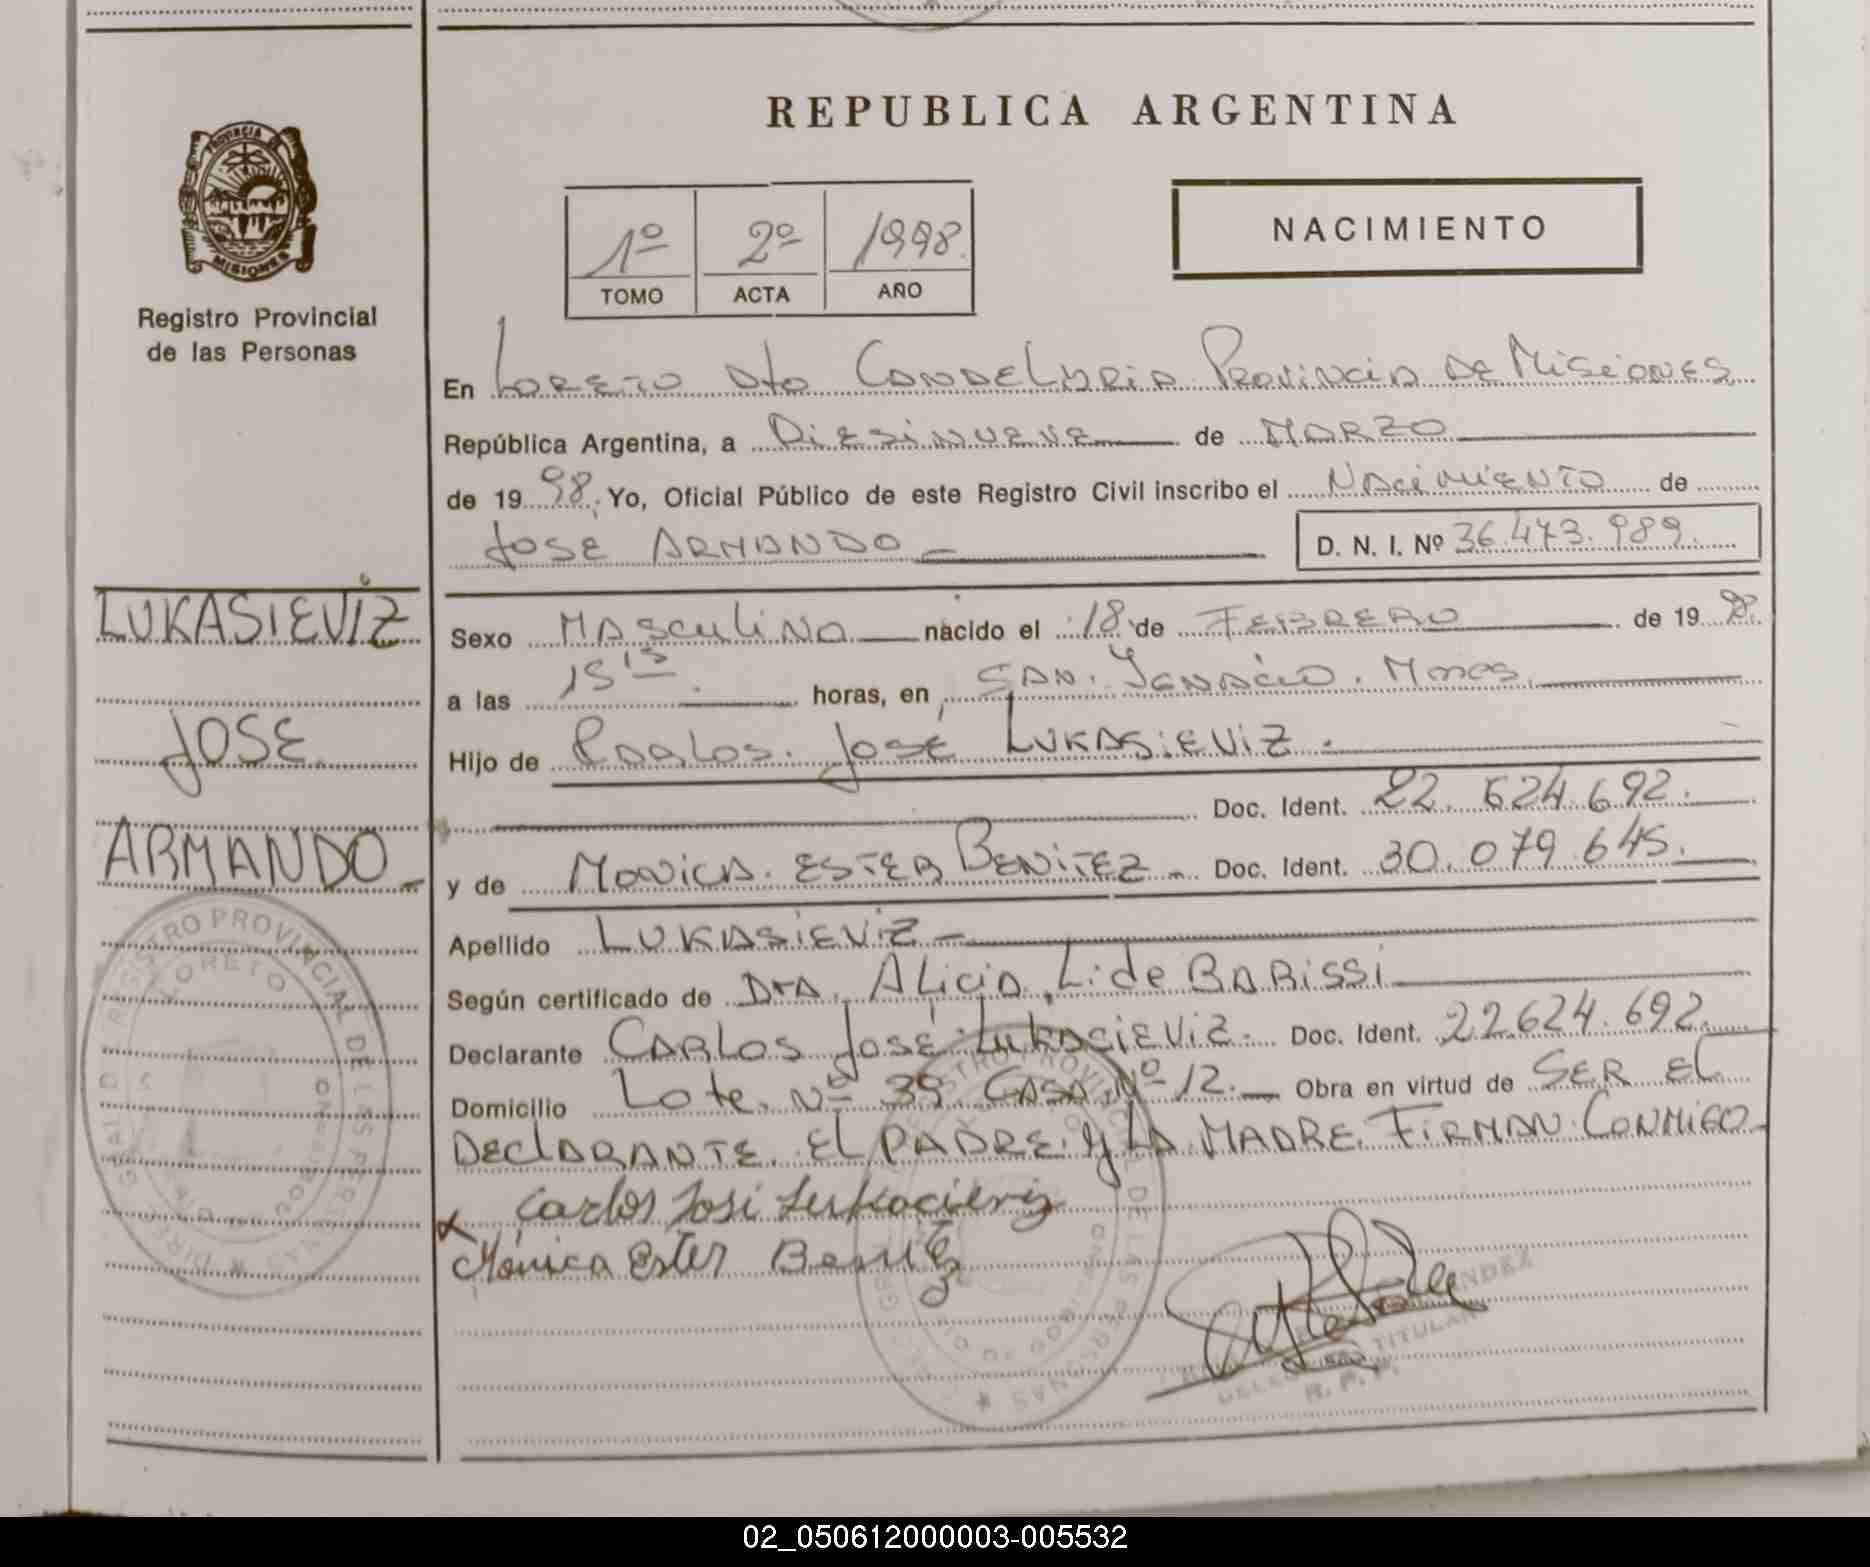 REPUBLICA ARGENTINA
PROVINCIA
MISIONES
Registro Provincial
de las Personas
1º 2º 1998.
TOMO ACTA AÑO
NACIMIENTO
En LORETO Dto CANDELARIA PROVINCIA DE MISIONES
República Argentina, a DIESINUEVE de MARZO
de 19 98. Yo, Oficial Público de este Registro Civil inscribo el NACIMIENTO de
JOSE ARMANDO D. N. I. Nº 36.473.989.
LUKASIEVIZ
JOSE.
ARMANDO
Sexo MASCULINO nacido el 18 de FEBRERO de 19 98.
a las 15 15 horas, en SAN. IGNACIO. Mnes.
Hijo de CARLOS. JOSE LUKASIEVIZ.
Doc. Ident. 22.624.692.
y de MONICA. ESTER BENITEZ - Doc. Ident. 30.079.645.
Apellido LUKASIEVIZ -
Según certificado de DRA. ALICIA. LIDE BARISSI
Declarante CARLOS JOSÉ LUKACIEVIZ. Doc. Ident. 22624.692.
Domicilio Lote. Nº 39 CASA Nº 12. Obra en virtud de SER EL
DECLARANTE. EL PADRE Y LA MADRE. FIRMAN CONMIGO
Carlos José Lukacieviz
Mónica Ester Benitez
REGISTRO PROVINCIAL DE LAS PERSONAS
LORETO
TITULAR
R. P. P.
02_050612000003-005532